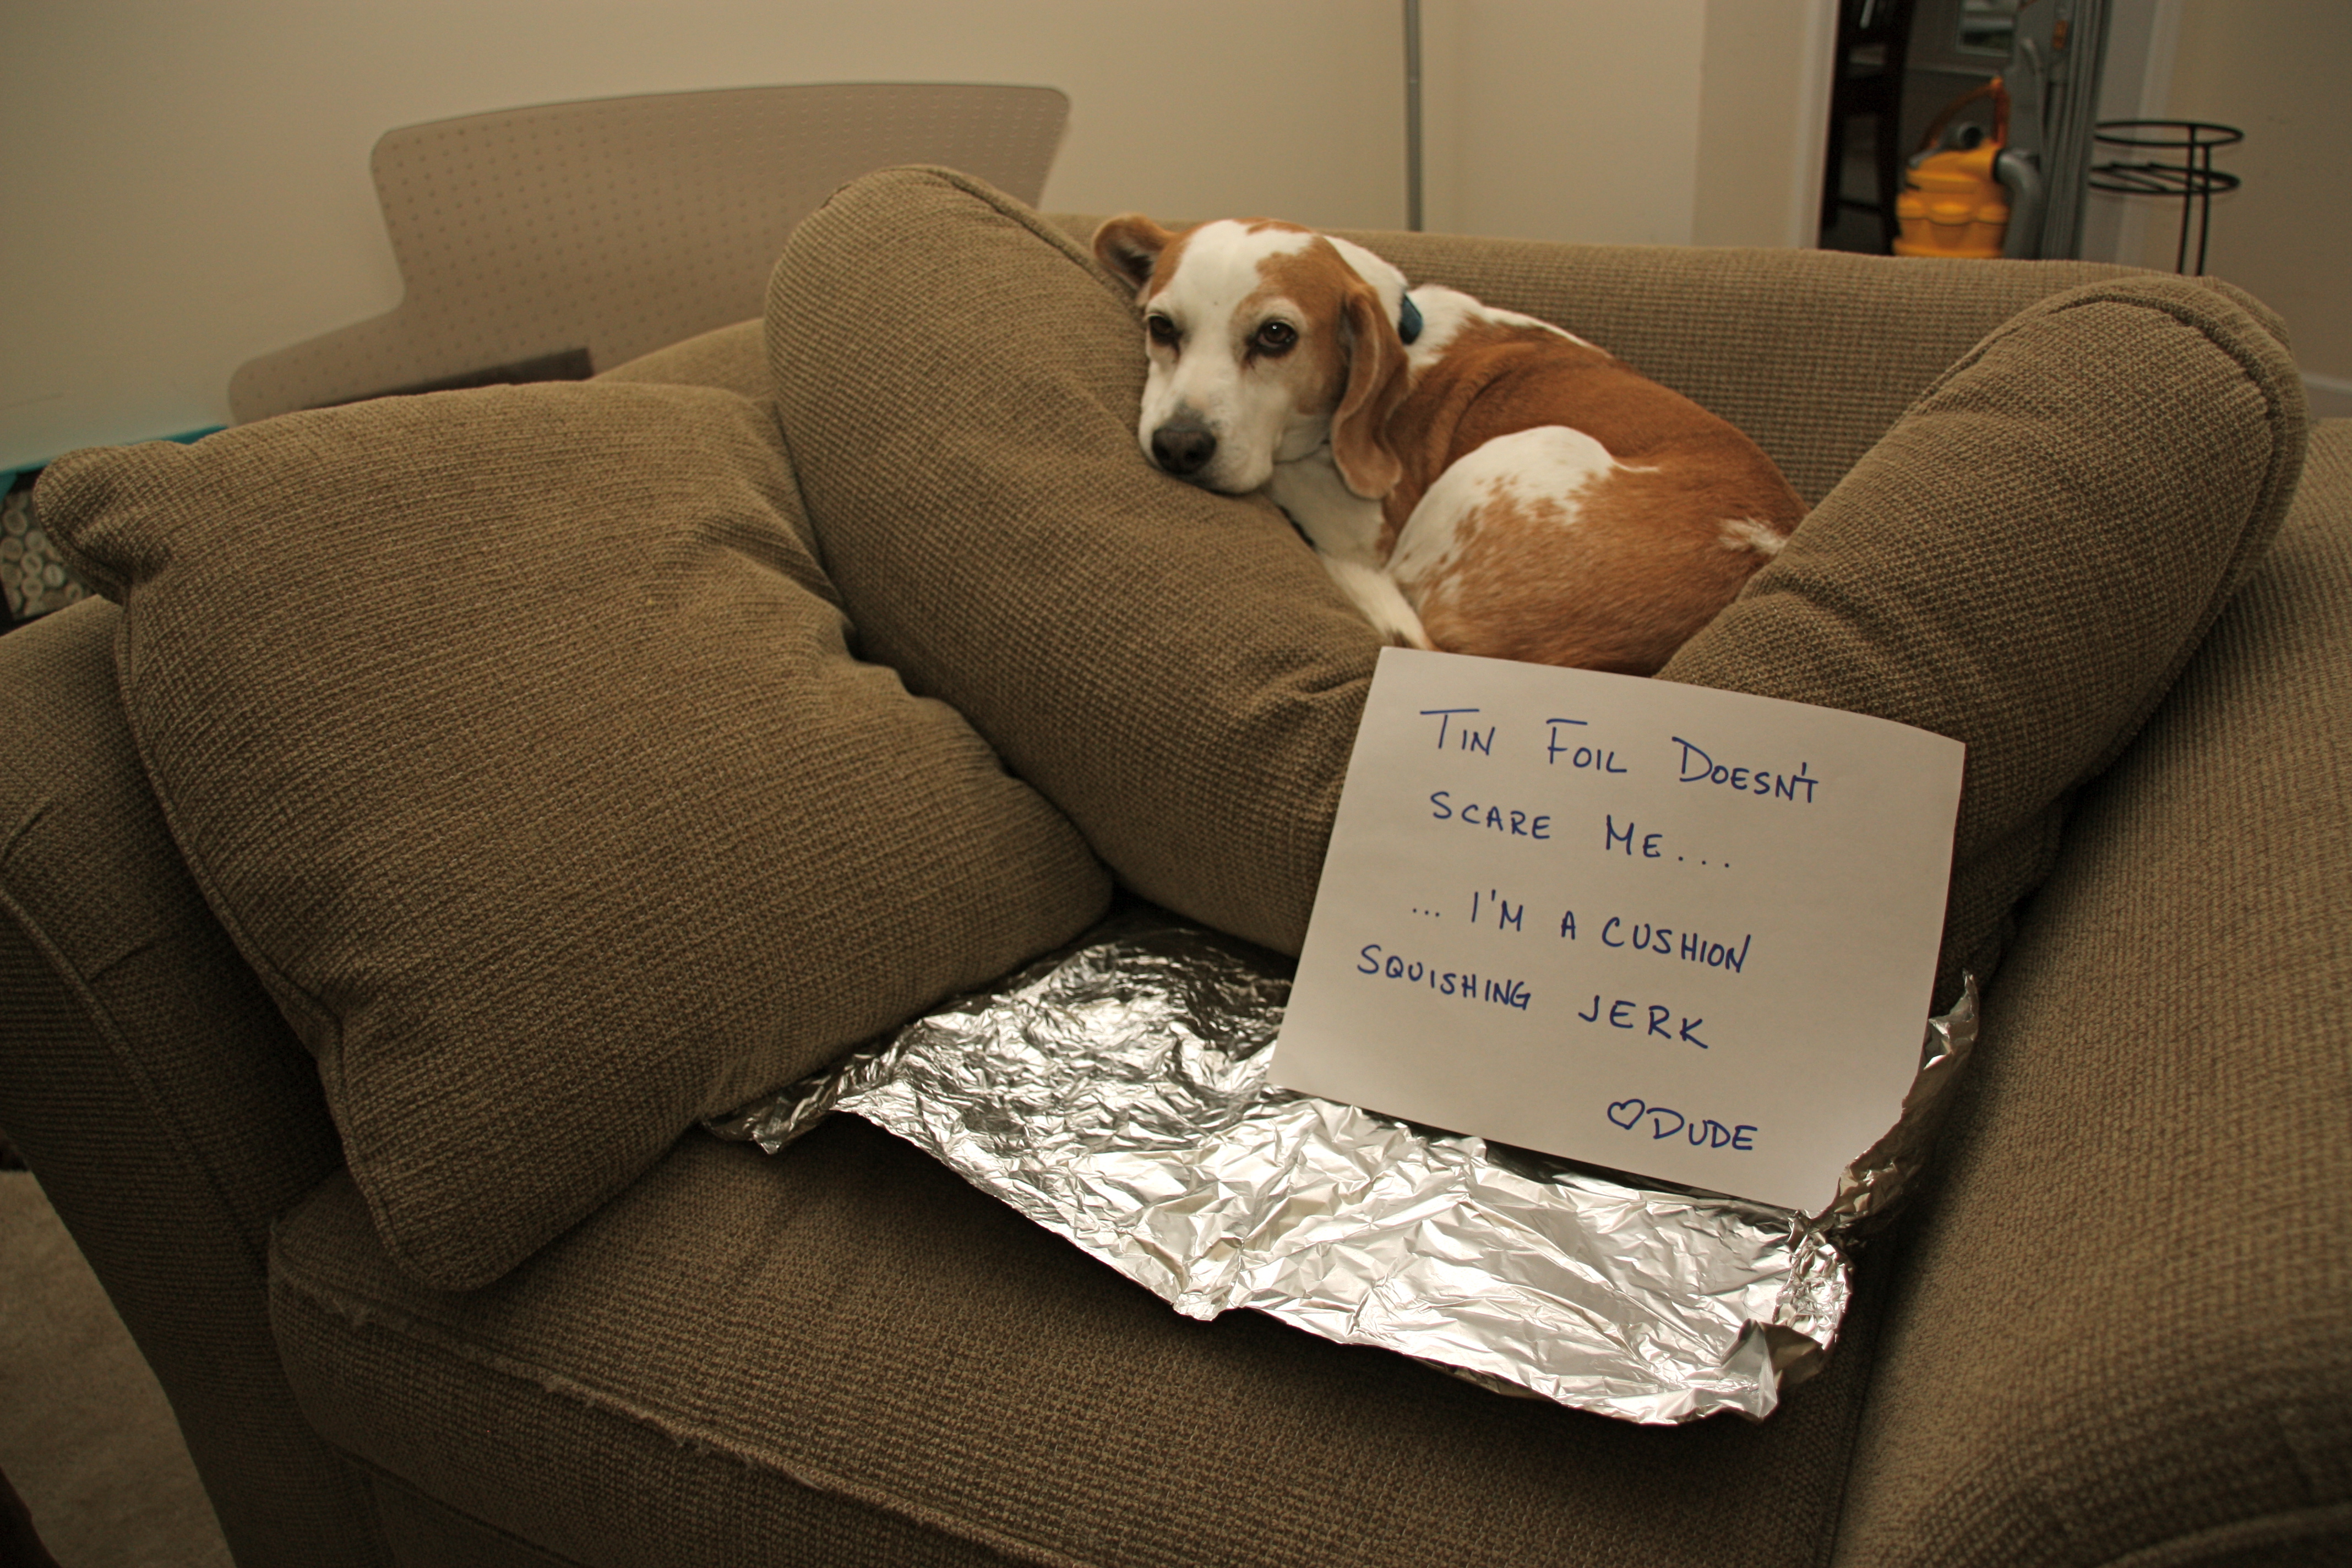 TIN FOIL DOESN'T
SCARE ME...
... I'M A CUSHION
SQUISHING JERK
♡DUDE